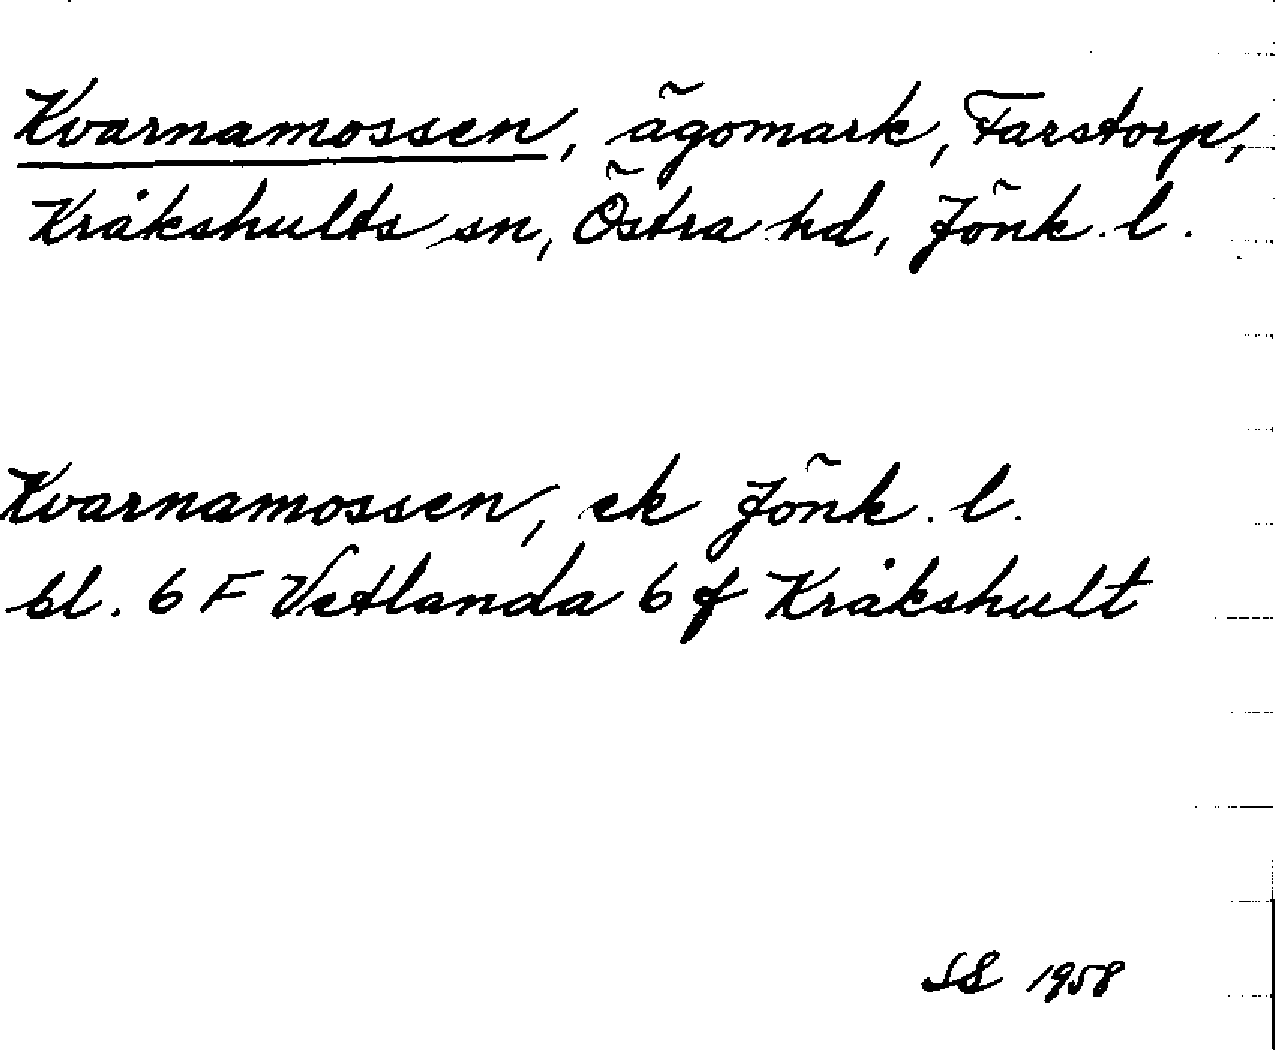 Kvarnamossen, ägomark, Farstorp,
Kråkshults sn, Östra hd, Jönk. l.
Kvarnamossen, ek Jönk. l.
bl. 6 F Vetlanda 6 f Kråkshult
SS 1958